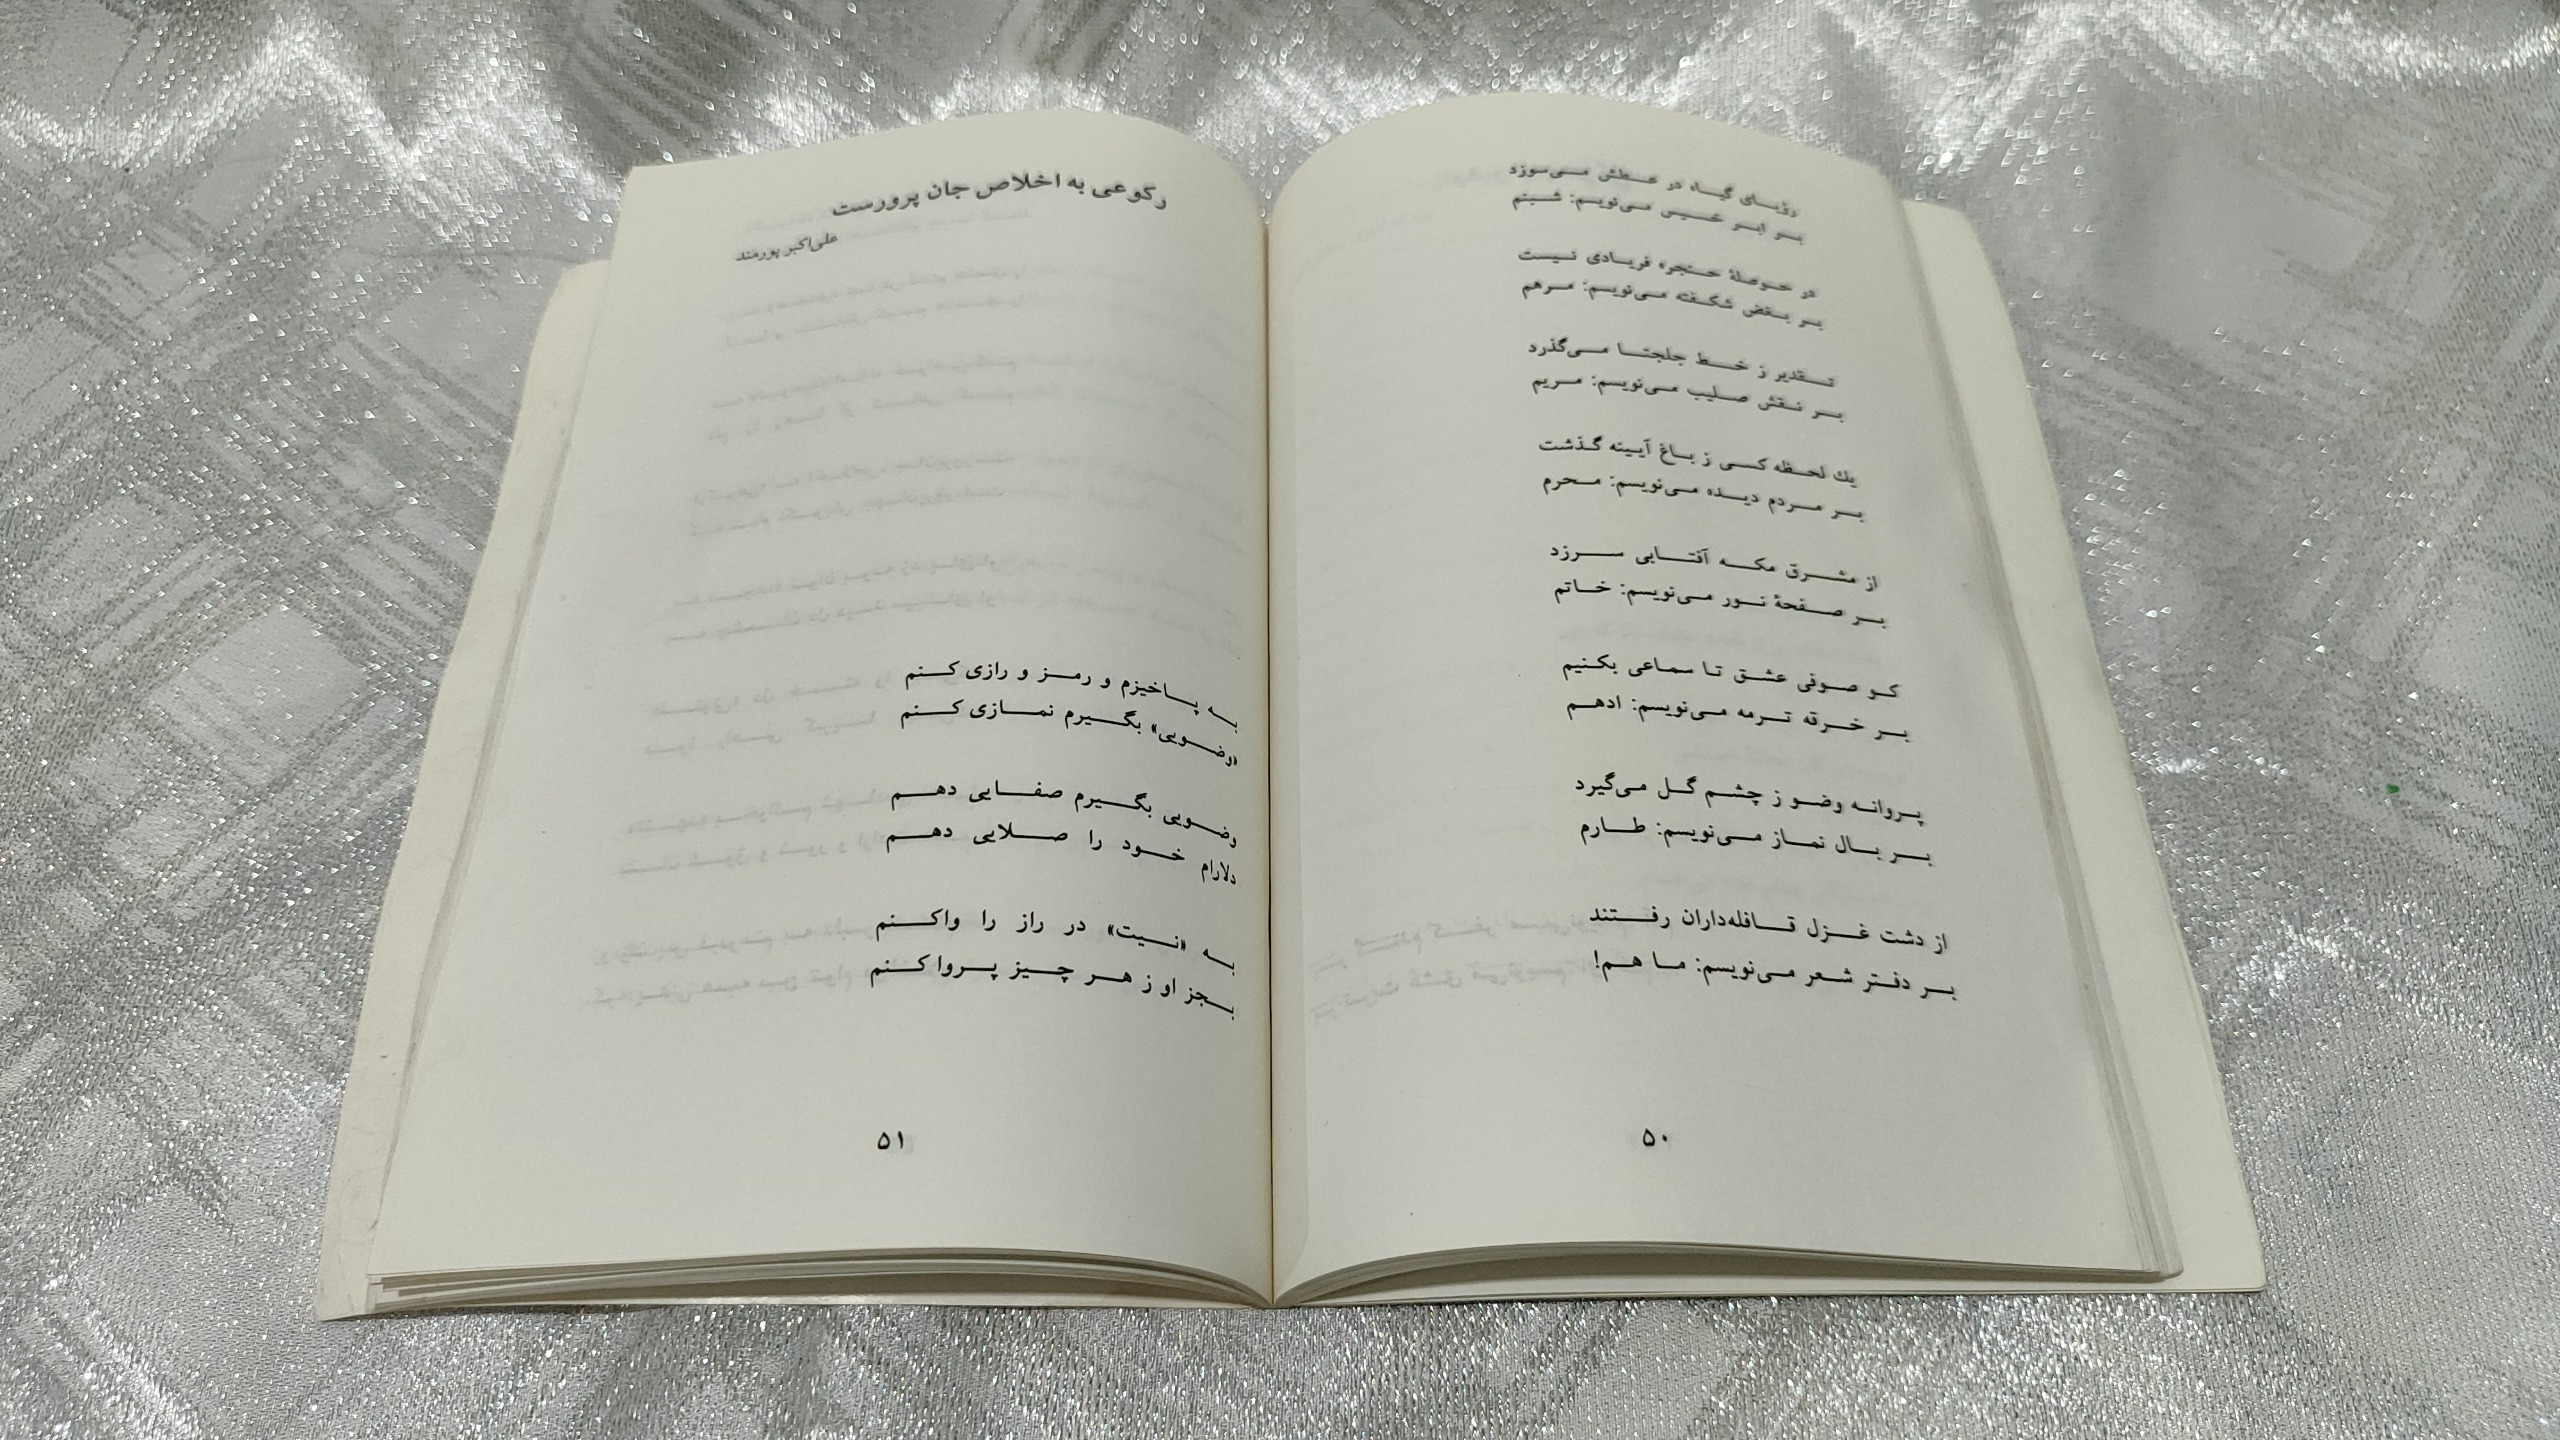 رؤیای گیاه در عطش می‌سوزد
بر ابر خسیس می‌نویسم: شبنم
در حوصلهٔ حنجره فریادی نیست
بر بغض شکفته می‌نویسم: مرهم
تقدیر ز خط جلجتا می‌گذرد
بر نقش صلیب می‌نویسم: مریم
یك لحظه کسی ز باغ آیینه گذشت
بر مردم دیده می‌نویسم: محرم
از مشرق مکه آفتابی سرزد
بر صفحهٔ نور می‌نویسم: خاتم
کو صوفی عشق تا سماعی بکنیم
بر خرقه ترمه می‌نویسم: ادهم
پروانه وضو ز چشم گل می‌گیرد
بر بال نماز می‌نویسم: طارم
از دشت غزل قافله‌داران رفتند
بر دفتر شعر می‌نویسم: ما هم!
۵۰
رکوعی به اخلاص جان پرورست
علی‌اکبر پورمند
به پاخیزم و رمز و رازی کنم
«وضویی» بگیرم نمازی کنم
وضویی بگیرم صفایی دهم
دلارام خود را صلایی دهم
به «نیت» در راز را واکنم
بجز او ز هر چیز پروا کنم
۵۱